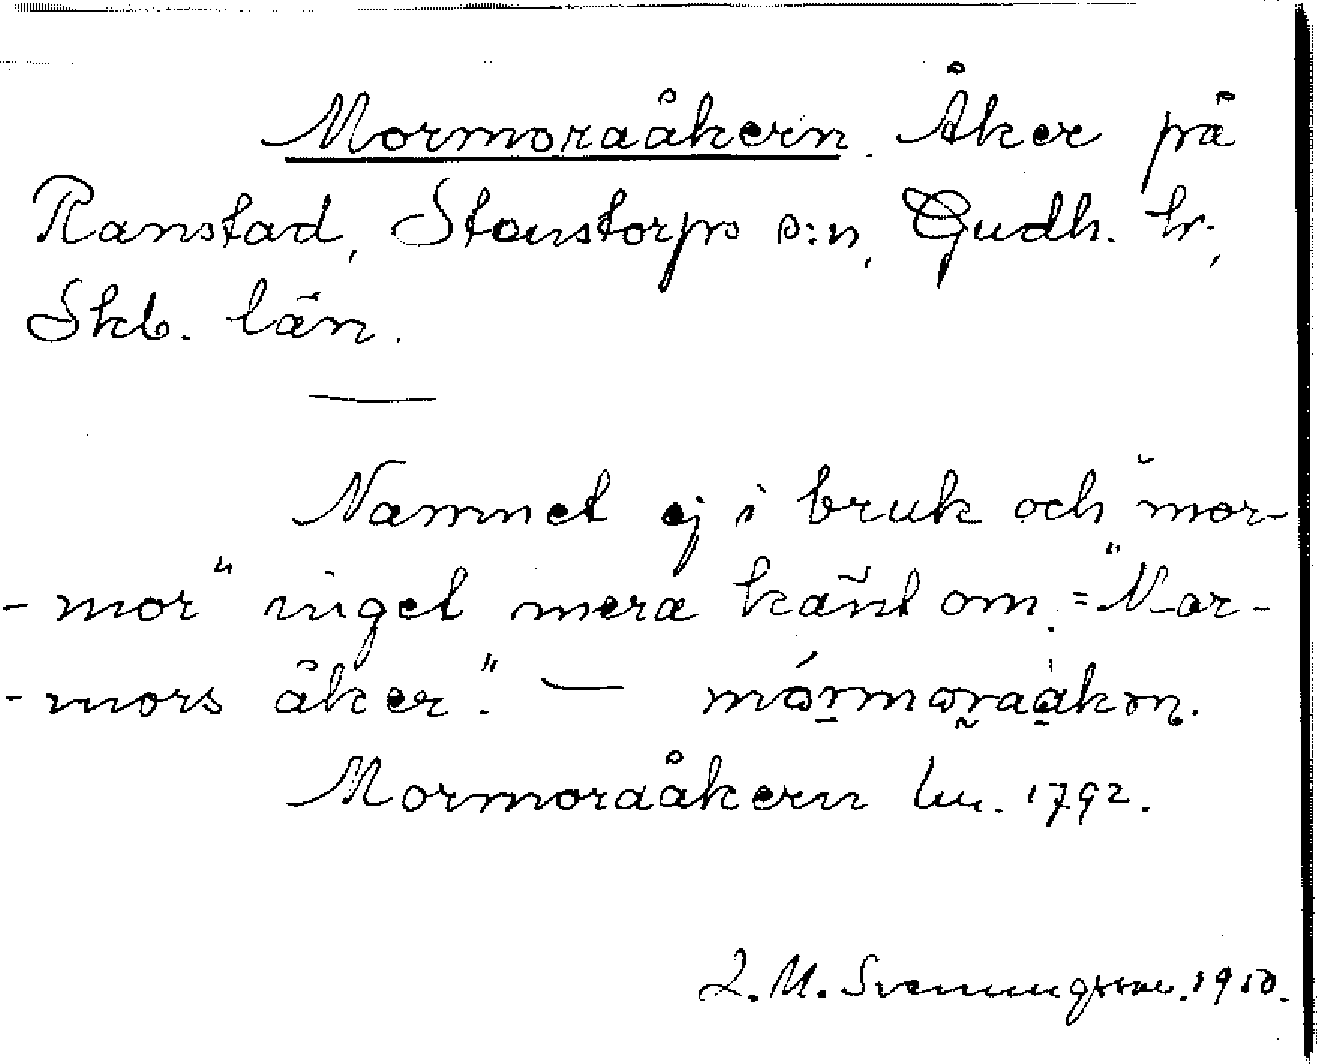 Mormoraåkern. Åker på
Ranstad, Stenstorps s:n, Gudh. hr.,
Skb. län.
Namnet ej i bruk och "mor-
-mor" inget mera känt om. = "Mor-
-mors åker." — mórmoraåkɒn.
Mormoraåkern lm. 1792.
L. M. Svenungsson. 1950.